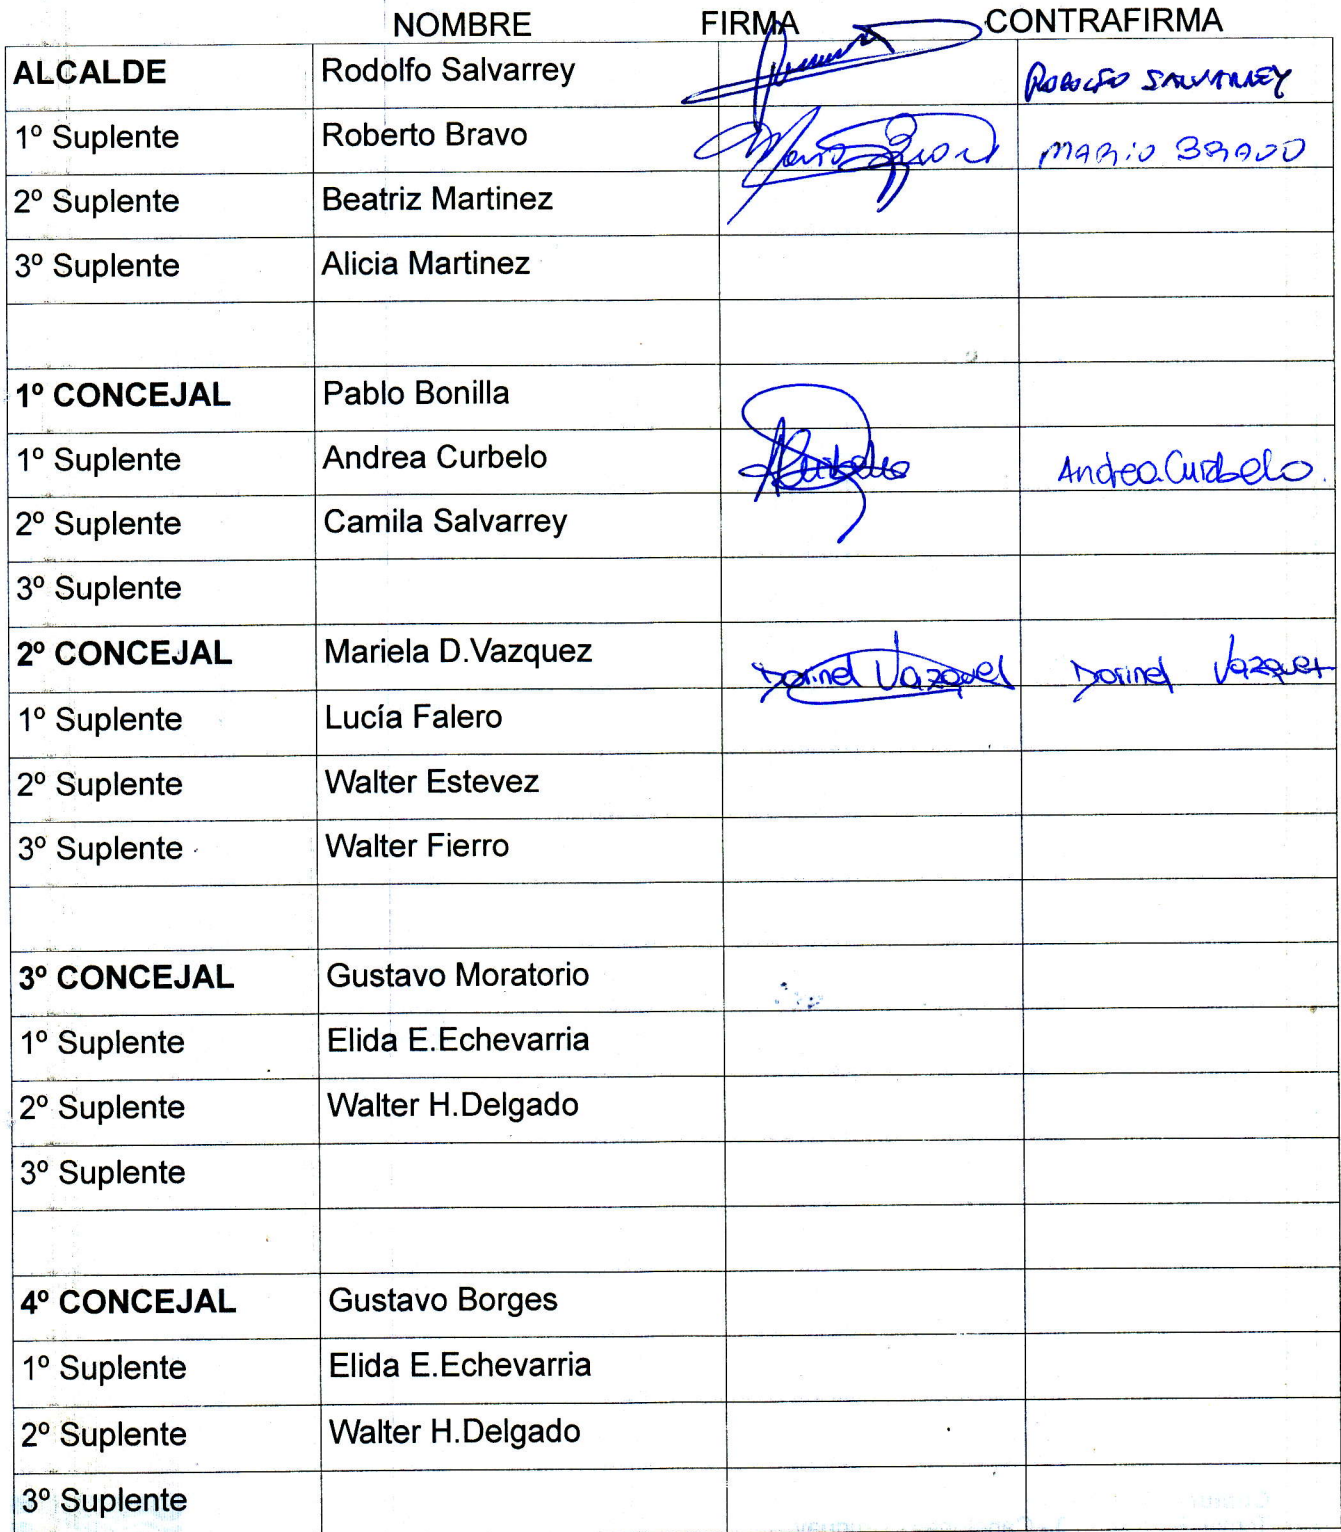 NOMBRE FIRMA CONTRAFIRMA
ALCALDE Rodolfo Salvarrey RODOLFO SALVARREY
1º Suplente Roberto Bravo Mario Bravo MARIO BRAVO
2º Suplente Beatriz Martinez
3º Suplente Alicia Martinez
1º CONCEJAL Pablo Bonilla
1º Suplente Andrea Curbelo ACurbelo Andrea Curbelo.
2º Suplente Camila Salvarrey
3º Suplente
2º CONCEJAL Mariela D.Vazquez Dorinel Vazquez Dorinel Vazquez
1º Suplente Lucía Falero
2º Suplente Walter Estevez
3º Suplente Walter Fierro
3º CONCEJAL Gustavo Moratorio
1º Suplente Elida E.Echevarria
2º Suplente Walter H.Delgado
3º Suplente
4º CONCEJAL Gustavo Borges
1º Suplente Elida E.Echevarria
2º Suplente Walter H.Delgado
3º Suplente